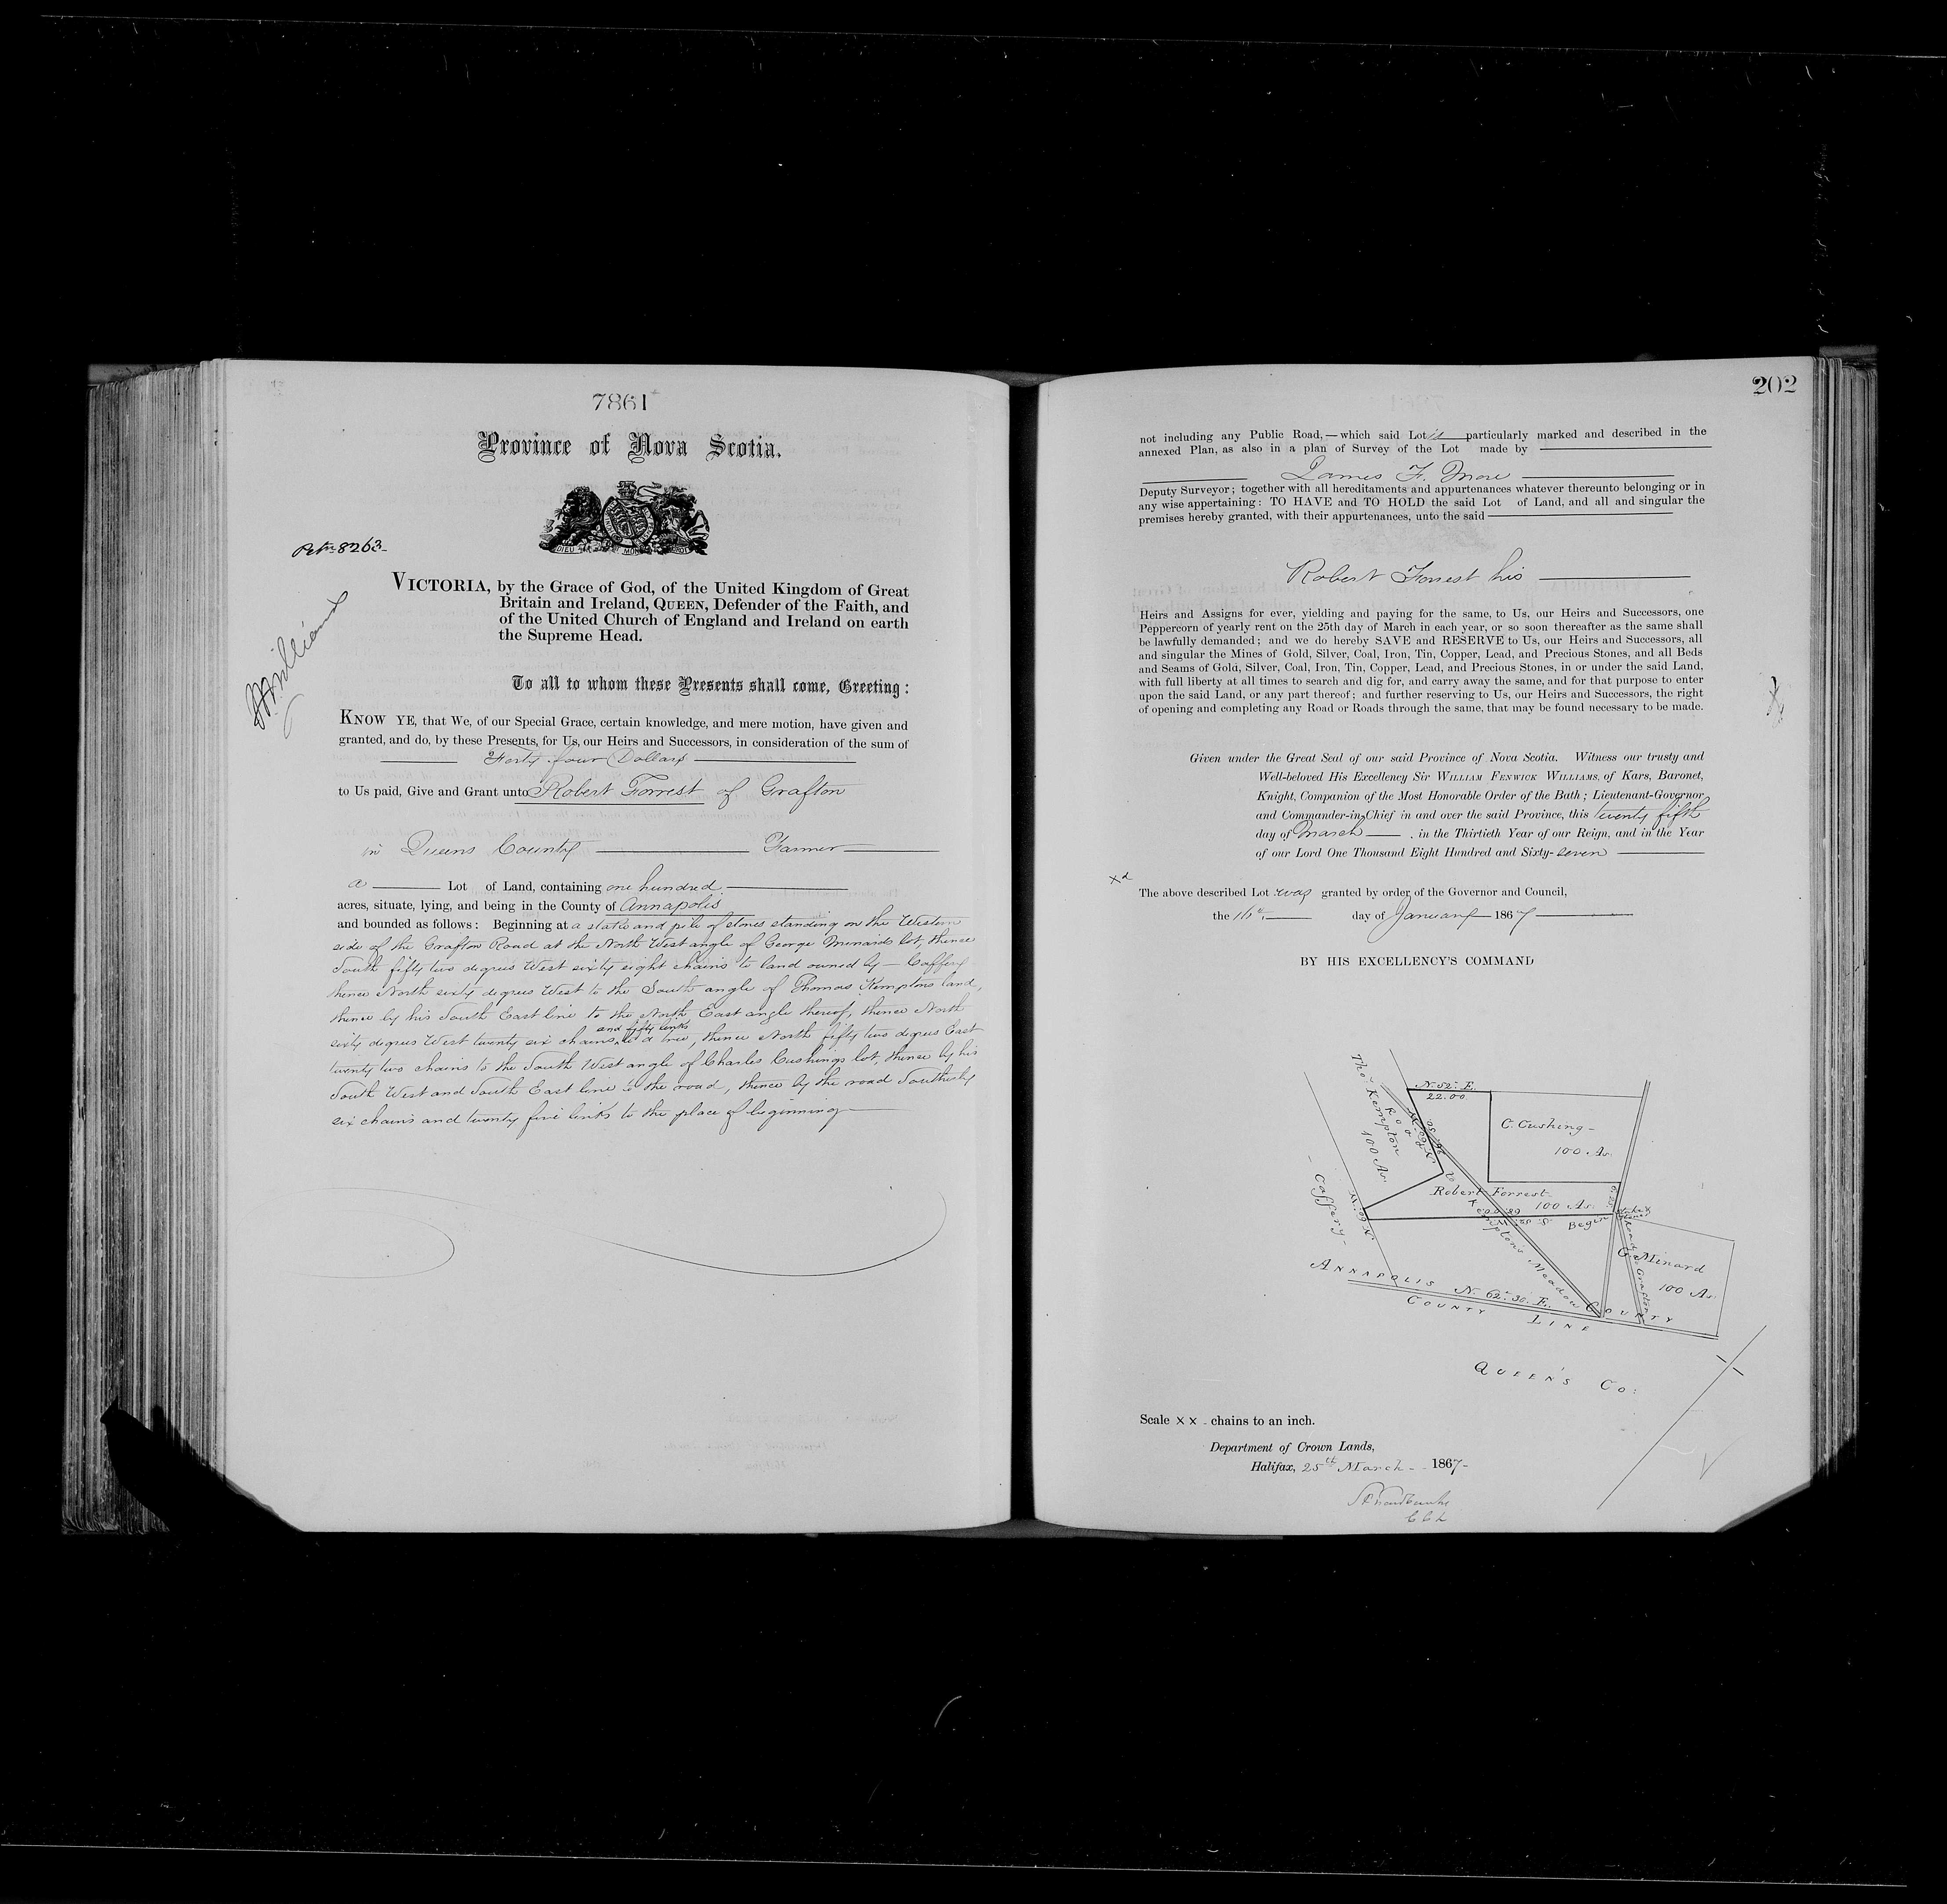 7861
Province of Nova Scotia.
Petn 8263
VICTORIA, by the Grace of God, of the United Kingdom of Great
Britain and Ireland, QUEEN, Defender of the Faith, and
of the United Church of England and Ireland on earth
the Supreme Head.
To all to whom these Presents shall come, Greeting:
KNOW YE, that We, of our Special Grace, certain knowledge, and mere motion, have given and
granted, and do, by these Presents, for Us, our Heirs and Successors, in consideration of the sum of
Forty four Dollars
to Us paid, Give and Grant unto Robert Forrest of Grafton
in Queens County Farmer
a Lot of Land, containing one hundred
acres, situate, lying, and being in the County of Annapolis
and bounded as follows: Beginning at a stake and pile of stones standing on the Western
side of the Grafton Road at the North West angle of George Minards lot, thence
South fifty two degrees West sixty eight chains to land owned by — Caffery
thence North sixty degrees West to the South angle of Thomas Kemptons land,
thence by his South East line to the North East angle thereof, thence North
sixty degrees West twenty six chains and fifty links to a tree, thence North fifty two degrees East
twenty two chains to the South West angle of Charles Cushings lot, thence by his
South West and South East line to the road, thence by the road Southerly
six chains and twenty five links to the place of beginning
202
not including any Public Road,—which said Lot is particularly marked and described in the
annexed Plan, as also in a plan of Survey of the Lot made by
James F. More
Deputy Surveyor; together with all hereditaments and appurtenances whatever thereunto belonging or in
any wise appertaining: TO HAVE and TO HOLD the said Lot of Land, and all and singular the
premises hereby granted, with their appurtenances, unto the said
Robert Forrest his
Heirs and Assigns for ever, yielding and paying for the same, to Us, our Heirs and Successors, one
Peppercorn of yearly rent on the 25th day of March in each year, or so soon thereafter as the same shall
be lawfully demanded; and we do hereby SAVE and RESERVE to Us, our Heirs and Successors, all
and singular the Mines of Gold, Silver, Coal, Iron, Tin, Copper, Lead, and Precious Stones, and all Beds
and Seams of Gold, Silver, Coal, Iron, Tin, Copper, Lead, and Precious Stones, in or under the said Land,
with full liberty at all times to search and dig for, and carry away the same, and for that purpose to enter
upon the said Land, or any part thereof; and further reserving to Us, our Heirs and Successors, the right
of opening and completing any Road or Roads through the same, that may be found necessary to be made.
Given under the Great Seal of our said Province of Nova Scotia. Witness our trusty and
Well-beloved His Excellency Sir WILLIAM FENWICK WILLIAMS, of Kars, Baronet,
Knight, Companion of the Most Honorable Order of the Bath; Lieutenant-Governor
and Commander-in-Chief in and over the said Province, this twenty fifth
day of March, in the Thirtieth Year of our Reign, and in the Year
of our Lord One Thousand Eight Hundred and Sixty-seven
The above described Lot was granted by order of the Governor and Council,
the day of January 1867
BY HIS EXCELLENCY'S COMMAND
N. 52° E.
22.00
Thos Kempton
100 As.
Road
N. 60° W.
26.50
C. Cushing
100 As.
Robert Forrest
100 As.
S. 52° W.
68.00
Begin
Stake & Stones
6.25
N. 60° W.
Caffery
to Kempton's Meadow
Road to Grafton
G Minard
100 As.
ANNAPOLIS COUNTY
N. 62° 30' E.
COUNTY LINE
QUEEN'S CO:
Scale XX chains to an inch.
Department of Crown Lands,
Halifax, 25th March 1867